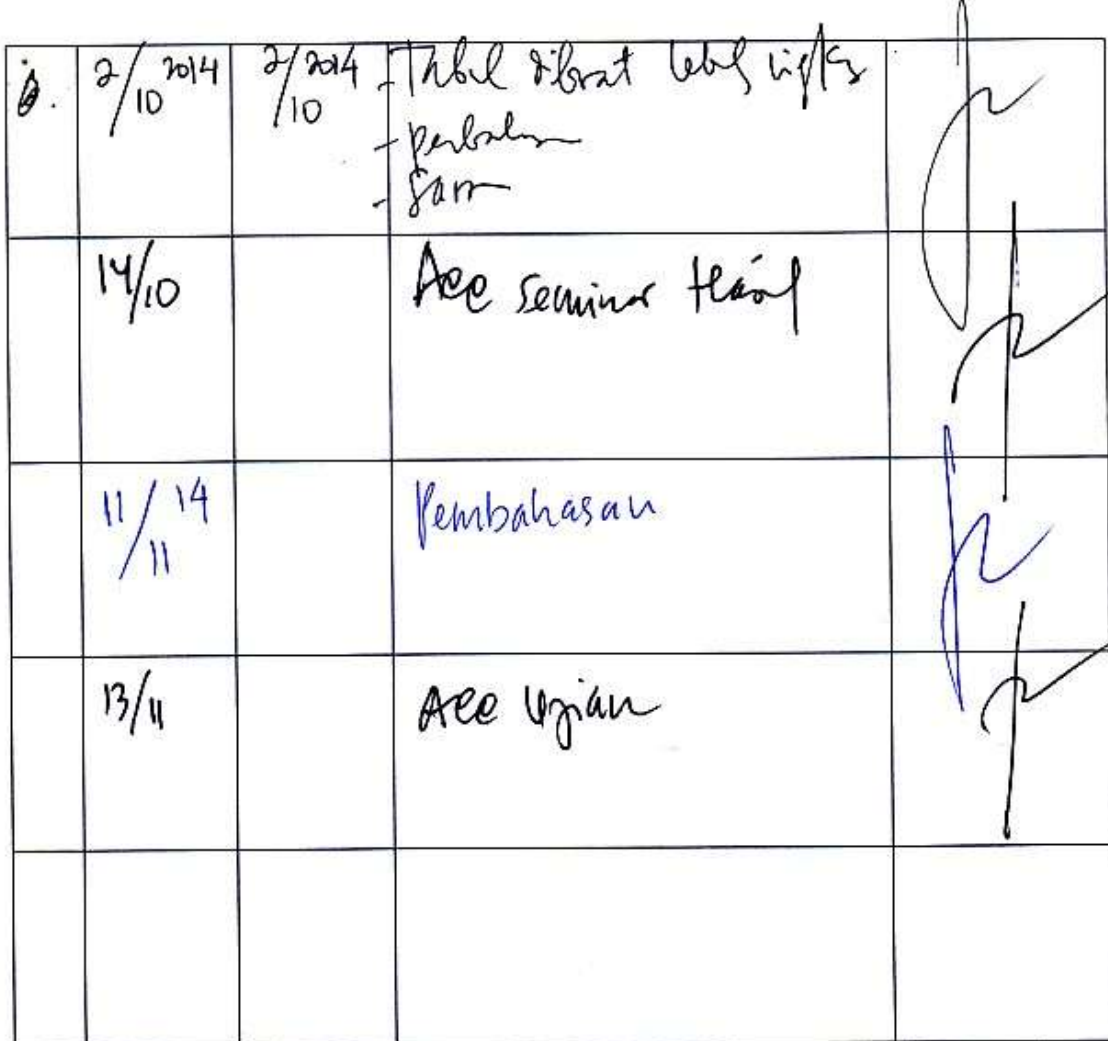 2/10 2014 2/10 2014 - Tabel dibuat lebih
-
- Saran
14/10 Acc Seminar Hasil
11/11 14 Pembahasan
13/11 Acc Ujian